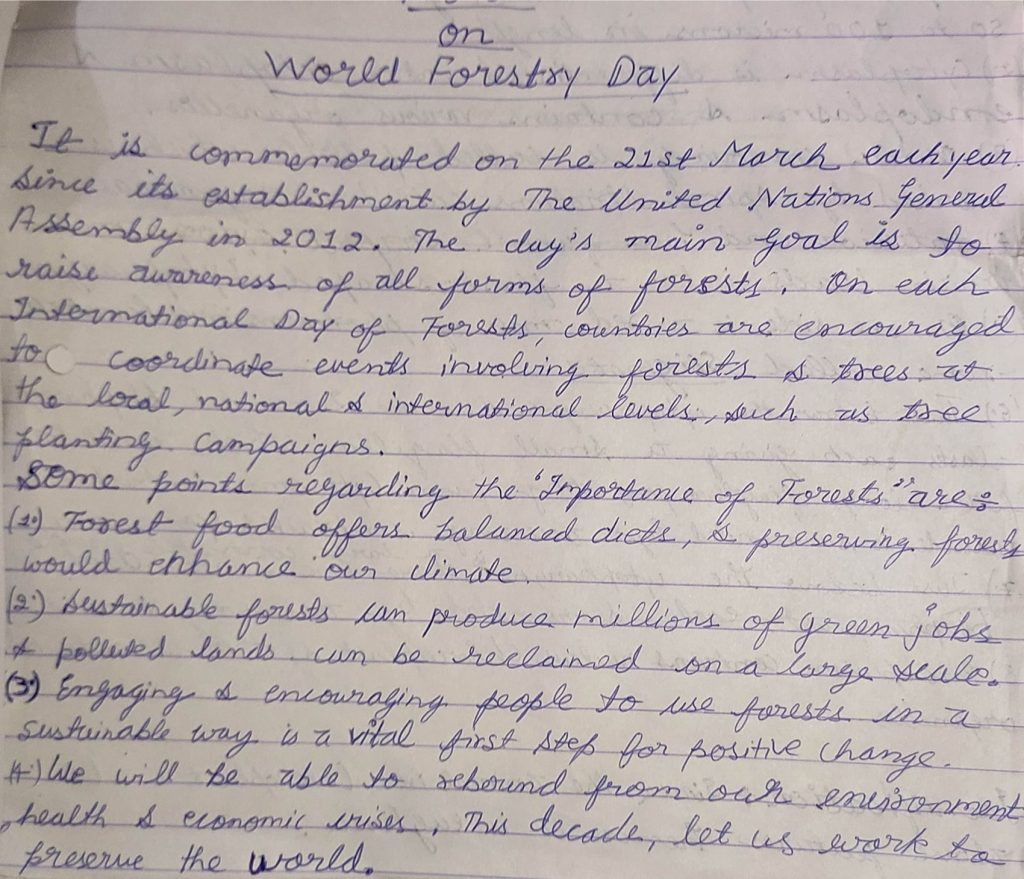 on
World Forestry Day
It is commemorated on the 21st March each year.
Since its establishment by The United Nations General
Assembly in 2012. The day's main goal is to
raise awareness of all forms of forests. On each
International Day of Forests, countries are encouraged
to coordinate events involving forests & trees at
the local, national & international levels, such as tree
planting campaigns.
Some points regarding the "Importance of Forests" are :-
(1.) Forest food offers balanced diets, & preserving forests
would enhance our climate.
(2.) Sustainable forests can produce millions of green jobs
& polluted lands can be reclaimed on a large scale.
(3.) Engaging & encouraging people to use forests in a
sustainable way is a vital first step for positive change.
4.) We will be able to rebound from our environment
, health & economic crises. This decade, let us work to
preserve the world.